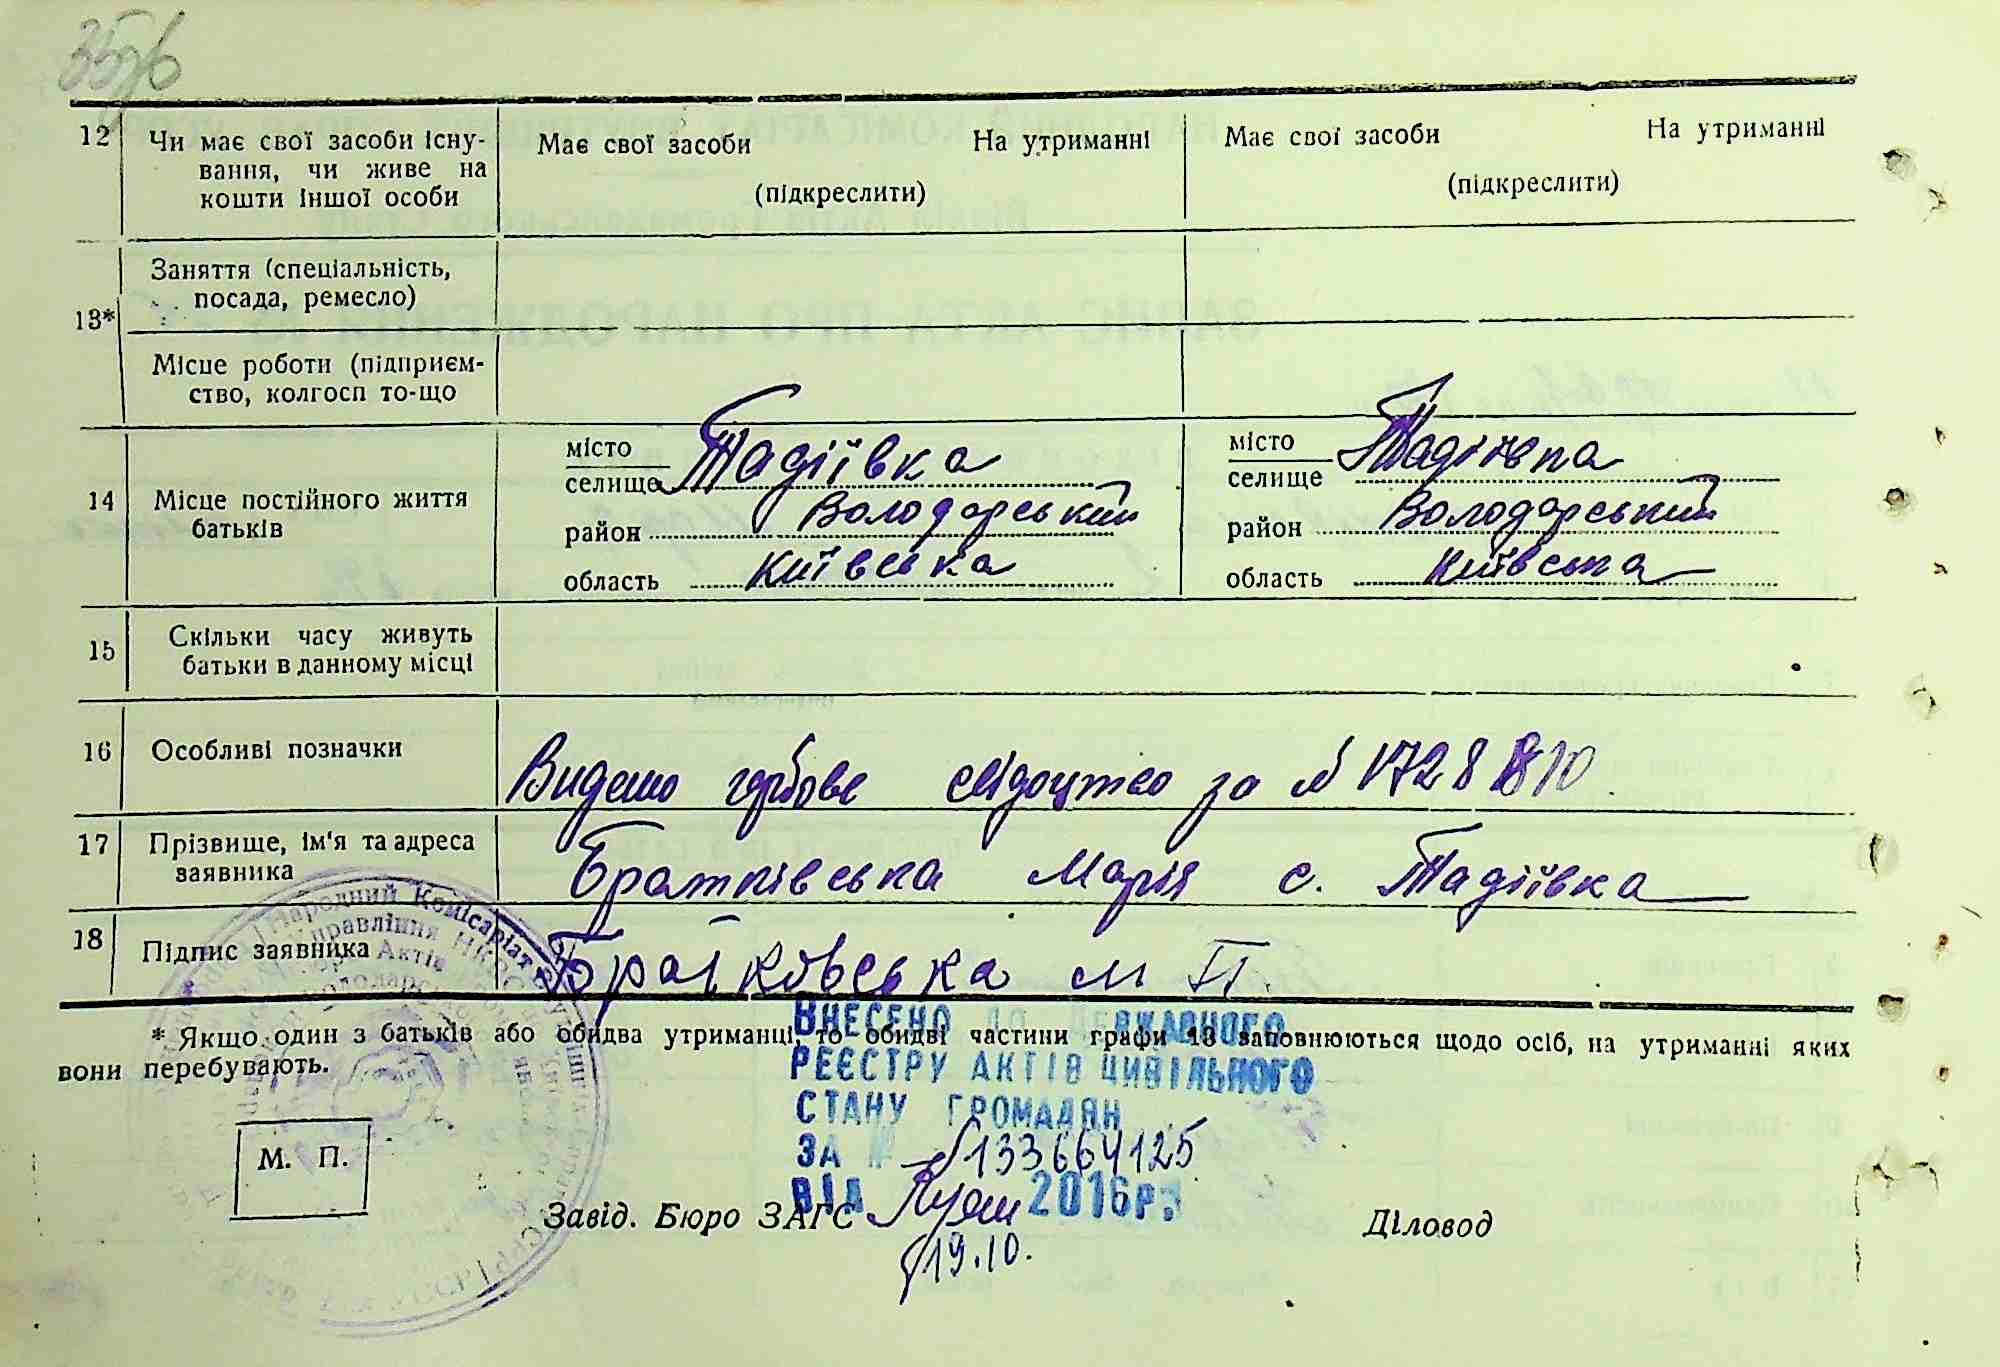 12 Чи має свої засоби існу-
вання, чи живе на
кошти іншої особи
Має свої засоби На утриманні
(підкреслити)
Має свої засоби На утриманні
(підкреслити)
13* Заняття (спеціальність,
посада, ремесло)
Місце роботи (підприєм-
ство, колгосп то-що
14 Місце постійного життя
батьків
місто
селище Тадіївка
район Володарський
область Київська
місто
селище Тадіївка
район Володарський
область Київська
15 Скільки часу живуть
батьки в данному місці
16 Особливі позначки
Видано гербове свідоцтво за № 1728810
17 Прізвище, ім'я та адреса
заявника
Братківська Марія с. Тадіївка
18 Підпис заявника
Братковська м П.
* Якщо один з батьків або обидва утриманці, то обидві частини графи 13 заповнюються щодо осіб, на утриманні яких
вони перебувають.
ВНЕСЕНО ДО ДЕРЖАВНОГО
РЕЄСТРУ АКТІВ ЦИВІЛЬНОГО
СТАНУ ГРОМАДЯН
ЗА № 133664125
ВІД 2016р.
19.10.
М. П.
Завід. Бюро ЗАГС
Діловод
Народний Комісаріат
Управління НКВС
Актів